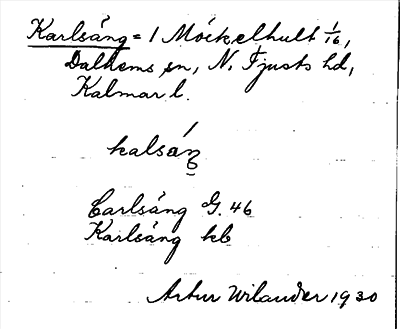 Karlsäng = 1 Möckelhult 1/16,
Dalhems sn, N. Tjusts hd,
Kalmar l.
kalsáŋ
Carlsäng G. 46
Karlsäng kb
Artur Wilander 1930